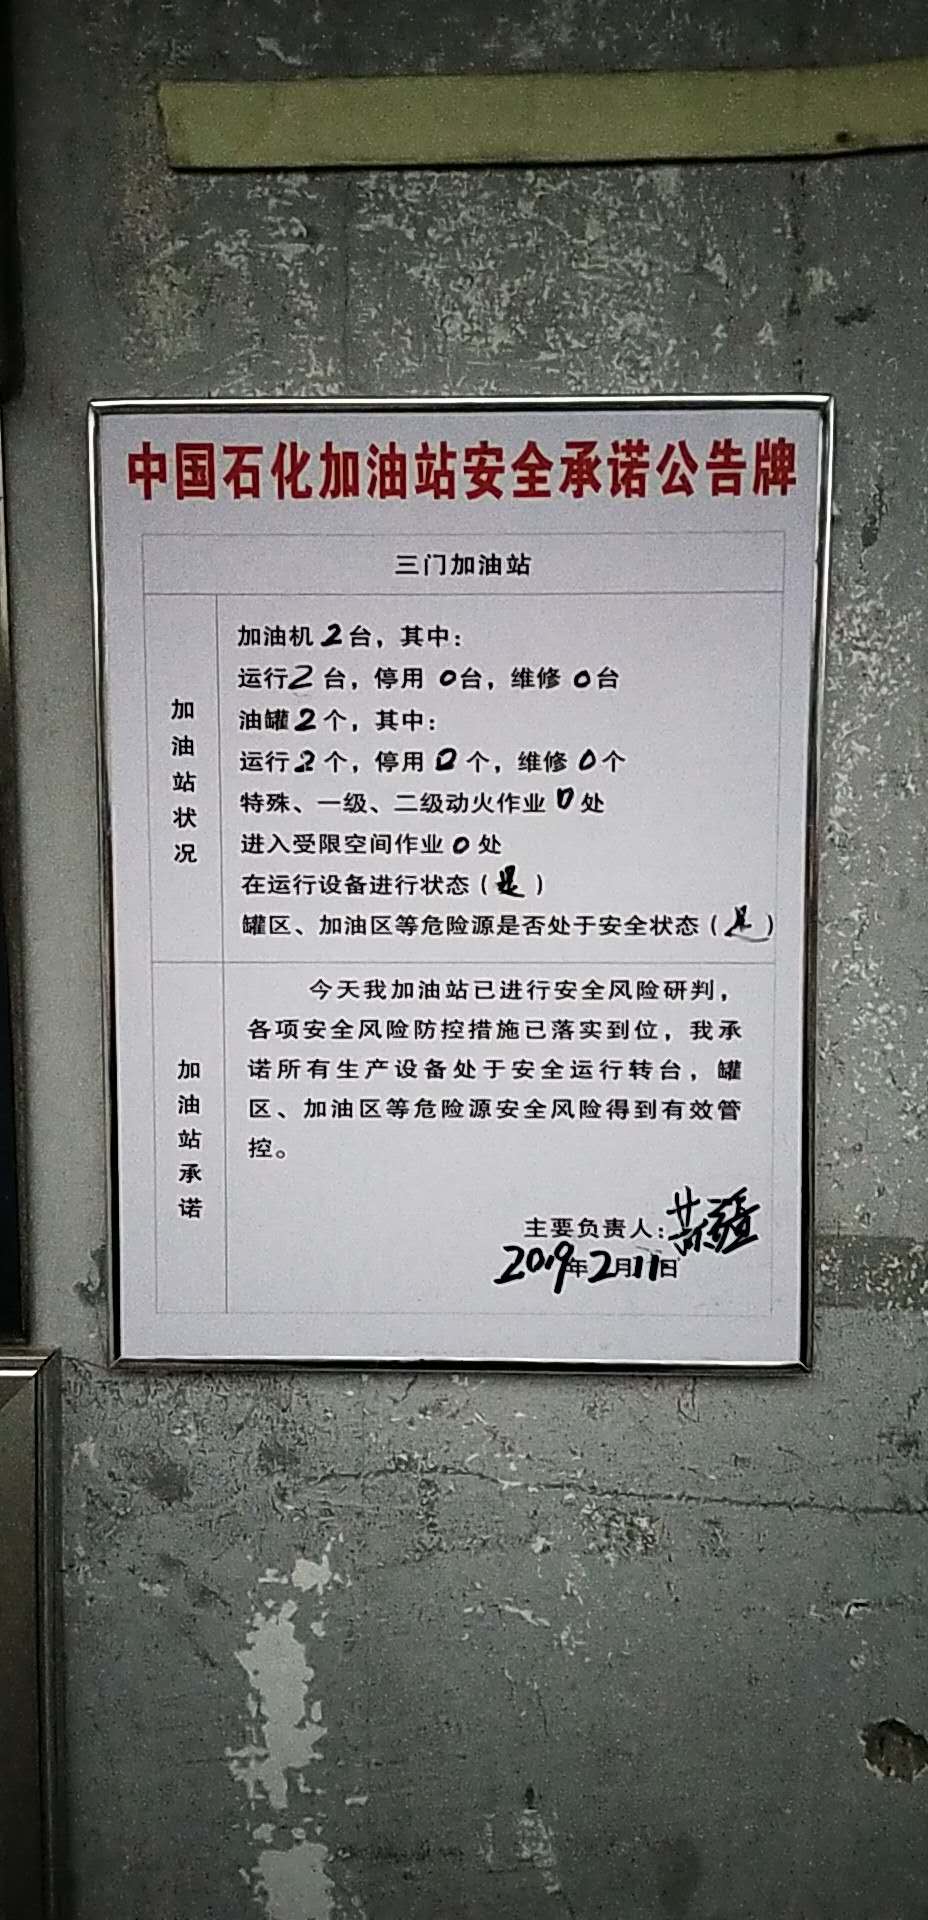 中国石化加油站安全承诺公告牌
三门加油站
加油站状况
加油机2台，其中：
运行2台，停用0台，维修0台
油罐2个，其中：
运行2个，停用0个，维修0个
特殊、一级、二级动火作业0处
进入受限空间作业0处
在运行设备进行状态（是）
罐区、加油区等危险源是否处于安全状态（是）
加油站承诺
今天我加油站已进行安全风险研判，
各项安全风险防控措施已落实到位，我承
诺所有生产设备处于安全运行转台，罐
区、加油区等危险源安全风险得到有效管
控。
主要负责人：
2019年2月11日